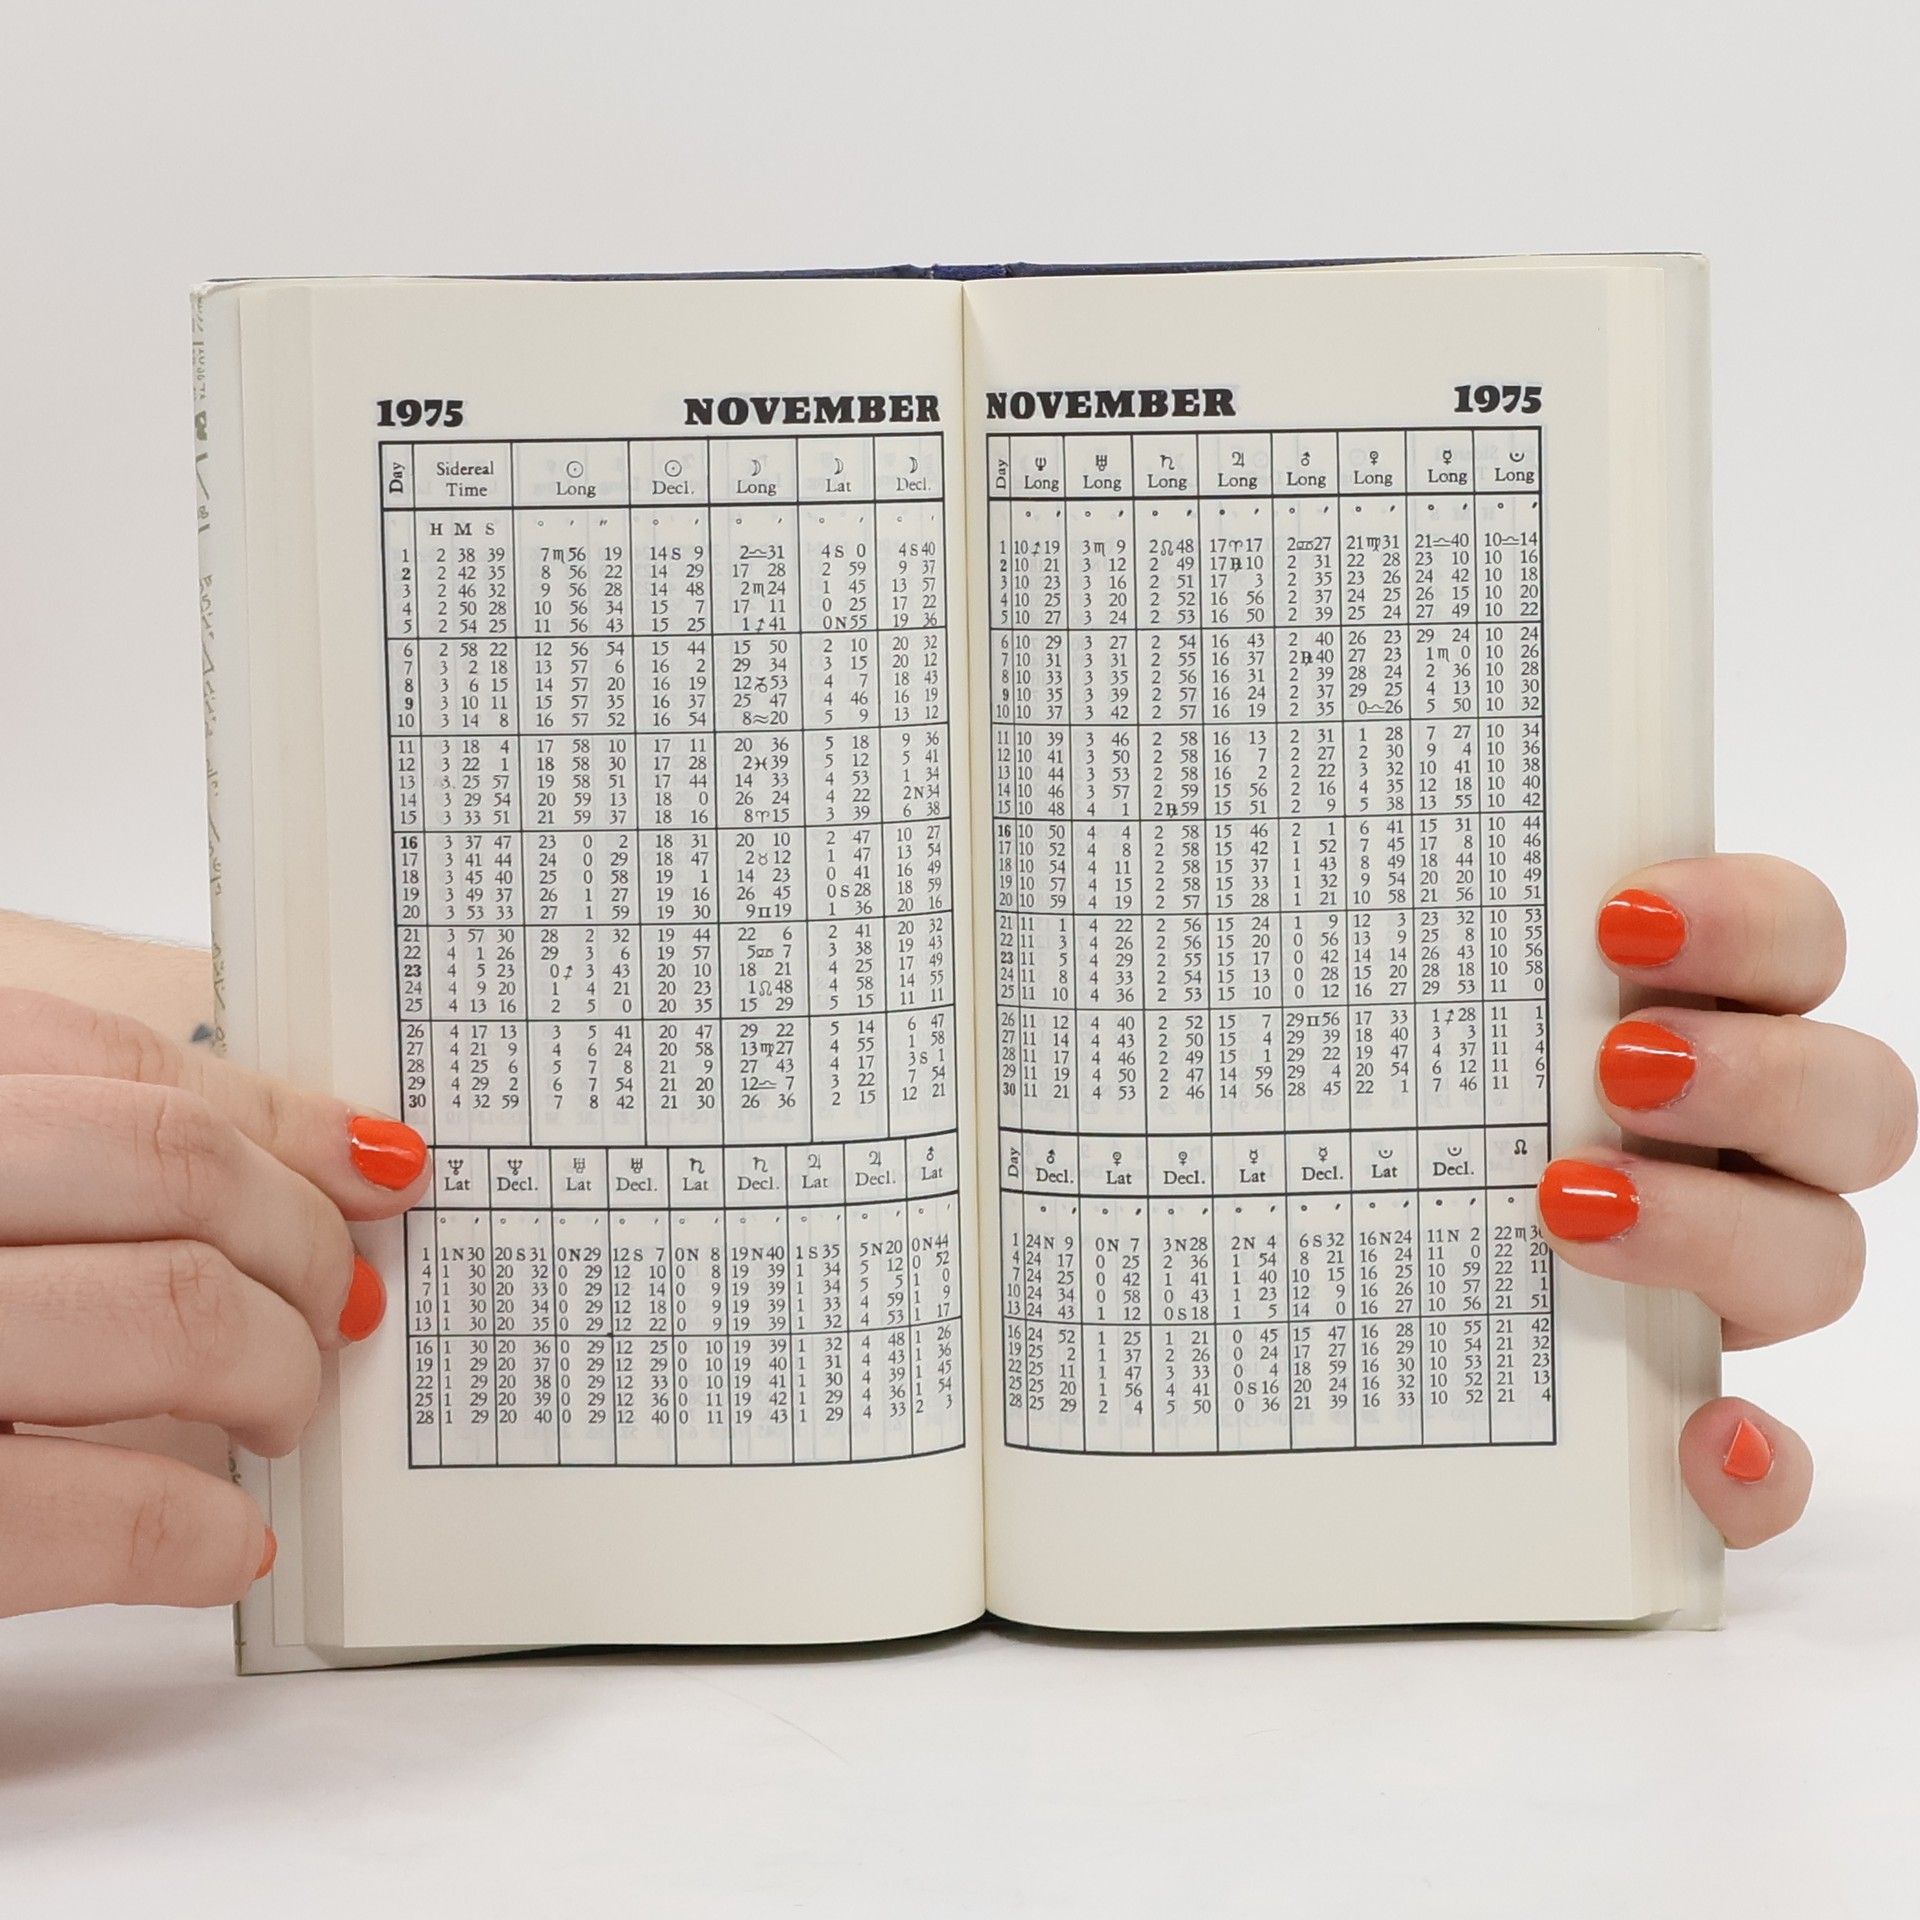 1975 NOVEMBER
Day Sidereal Time ☉ Long ☉ Decl. ☽ Long ☽ Lat ☽ Decl.
H M S ° ′ ″ ° ′ ° ′ ° ′ ° ′
1 2 38 39 7♏56 19 14 S 9 2♎31 4 S 0 4 S 40
2 2 42 35 8 56 22 14 29 17 28 2 59 9 37
3 2 46 32 9 56 28 14 48 2♏24 1 45 13 57
4 2 50 28 10 56 34 15 7 17 11 0 25 17 22
5 2 54 25 11 56 43 15 25 1♐41 0N55 19 36
6 2 58 22 12 56 54 15 44 15 50 2 10 20 32
7 3 2 18 13 57 6 16 2 29 34 3 15 20 12
8 3 6 15 14 57 20 16 19 12♑53 4 7 18 43
9 3 10 11 15 57 35 16 37 25 47 4 46 16 19
10 3 14 8 16 57 52 16 54 8♒20 5 9 13 12
11 3 18 4 17 58 10 17 11 20 36 5 18 9 36
12 3 22 1 18 58 30 17 28 2♓39 5 12 5 41
13 3 25 57 19 58 51 17 44 14 33 4 53 1 34
14 3 29 54 20 59 13 18 0 26 24 4 22 2N34
15 3 33 51 21 59 37 18 16 8♈15 3 39 6 38
16 3 37 47 23 0 2 18 31 20 10 2 47 10 27
17 3 41 44 24 0 29 18 47 2♉12 1 47 13 54
18 3 45 40 25 0 58 19 1 14 23 0 41 16 49
19 3 49 37 26 1 27 19 16 26 45 0 S 28 18 59
20 3 53 33 27 1 59 19 30 9♊19 1 36 20 16
21 3 57 30 28 2 32 19 44 22 6 2 41 20 32
22 4 1 26 29 3 6 19 57 5♋ 7 3 38 19 43
23 4 5 23 0♐ 3 43 20 10 18 21 4 25 17 49
24 4 9 20 1 4 21 20 23 1♌48 4 58 14 55
25 4 13 16 2 5 0 20 35 15 29 5 15 11 11
26 4 17 13 3 5 41 20 47 29 22 5 14 6 47
27 4 21 9 4 6 24 20 58 13♍27 4 55 1 58
28 4 25 6 5 7 8 21 9 27 43 4 17 3 S 1
29 4 29 2 6 7 54 21 20 12♎ 7 3 22 7 54
30 4 32 59 7 8 42 21 30 26 36 2 15 12 21
♆ Lat ♆ Decl. ♅ Lat ♅ Decl. ♄ Lat ♄ Decl. ♃ Lat ♃ Decl. ♂ Lat
° ′ ° ′ ° ′ ° ′ ° ′ ° ′ ° ′ ° ′ ° ′
1 1N30 20 S 31 0N29 12 S 7 0N 8 19N40 1 S 35 5N20 0N44
4 1 30 20 32 0 29 12 10 0 8 19 39 1 34 5 12 0 52
7 1 30 20 33 0 29 12 14 0 9 19 39 1 34 5 5 1 0
10 1 30 20 34 0 29 12 18 0 9 19 39 1 33 4 59 1 9
13 1 30 20 35 0 29 12 22 0 9 19 39 1 32 4 53 1 17
16 1 30 20 36 0 29 12 25 0 10 19 39 1 32 4 48 1 26
19 1 29 20 37 0 29 12 29 0 10 19 40 1 31 4 43 1 36
22 1 29 20 38 0 29 12 33 0 10 19 41 1 30 4 39 1 45
25 1 29 20 39 0 29 12 36 0 11 19 42 1 29 4 36 1 54
28 1 29 20 40 0 29 12 40 0 11 19 43 1 29 4 33 2 3
NOVEMBER 1975
Day ♆ Long ♅ Long ♄ Long ♃ Long ♂ Long ♀ Long ☿ Long Long
° ′ ° ′ ° ′ ° ′ ° ′ ° ′ ° ′ ° ′
1 10♐19 3♏ 9 2♌48 17♈17 2♋27 21♍31 21♎40 10♎14
2 10 21 3 12 2 49 17℞10 2 31 22 28 23 10 10 16
3 10 23 3 16 2 51 17 3 2 35 23 26 24 42 10 18
4 10 25 3 20 2 52 16 56 2 37 24 25 26 15 10 20
5 10 27 3 24 2 53 16 50 2 39 25 24 27 49 10 22
6 10 29 3 27 2 54 16 43 2 40 26 23 29 24 10 24
7 10 31 3 31 2 55 16 37 2℞40 27 23 1♏ 0 10 26
8 10 33 3 35 2 56 16 31 2 39 28 24 2 36 10 28
9 10 35 3 39 2 57 16 24 2 37 29 25 4 13 10 30
10 10 37 3 42 2 57 16 19 2 35 0♎26 5 50 10 32
11 10 39 3 46 2 58 16 13 2 31 1 28 7 27 10 34
12 10 41 3 50 2 58 16 7 2 27 2 30 9 4 10 36
13 10 44 3 53 2 58 16 2 2 22 3 32 10 41 10 38
14 10 46 3 57 2 59 15 56 2 16 4 35 12 18 10 40
15 10 48 4 1 2℞59 15 51 2 9 5 38 13 55 10 42
16 10 50 4 4 2 58 15 46 2 1 6 41 15 31 10 44
17 10 52 4 8 2 58 15 42 1 52 7 45 17 8 10 46
18 10 54 4 11 2 58 15 37 1 43 8 49 18 44 10 48
19 10 57 4 15 2 58 15 33 1 32 9 54 20 20 10 49
20 10 59 4 19 2 57 15 28 1 21 10 58 21 56 10 51
21 11 1 4 22 2 56 15 24 1 9 12 3 23 32 10 53
22 11 3 4 26 2 56 15 20 0 56 13 9 25 8 10 55
23 11 5 4 29 2 55 15 17 0 42 14 14 26 43 10 56
24 11 8 4 33 2 54 15 13 0 28 15 20 28 18 10 58
25 11 10 4 36 2 53 15 10 0 12 16 27 29 53 11 0
26 11 12 4 40 2 52 15 7 29♊56 17 33 1♐28 11 1
27 11 14 4 43 2 50 15 4 29 39 18 40 3 3 11 3
28 11 17 4 46 2 49 15 1 29 22 19 47 4 37 11 4
29 11 19 4 50 2 47 14 59 29 4 20 54 6 12 11 6
30 11 21 4 53 2 46 14 56 28 45 22 1 7 46 11 7
Day ♂ Decl. ♀ Lat ♀ Decl. ☿ Lat ☿ Decl. Lat Decl. ☊
° ′ ° ′ ° ′ ° ′ ° ′ ° ′ ° ′ °
1 24N 9 0N 7 3N28 2N 4 6 S 32 16N24 11N 2 22♏
4 24 17 0 25 2 36 1 54 8 21 16 24 11 0 22 20
7 24 25 0 42 1 41 1 40 10 15 16 25 10 59 22 11
10 24 34 0 58 0 43 1 23 12 9 16 26 10 57 22 1
13 24 43 1 12 0 S 18 1 5 14 0 16 27 10 56 21 51
16 24 52 1 25 1 21 0 45 15 47 16 28 10 55 21 42
19 25 2 1 37 2 26 0 24 17 27 16 29 10 54 21 32
22 25 11 1 47 3 33 0 4 18 59 16 30 10 53 21 23
25 25 20 1 56 4 41 0 S 16 20 24 16 32 10 52 21 13
28 25 29 2 4 5 50 0 36 21 39 16 33 10 52 21 4